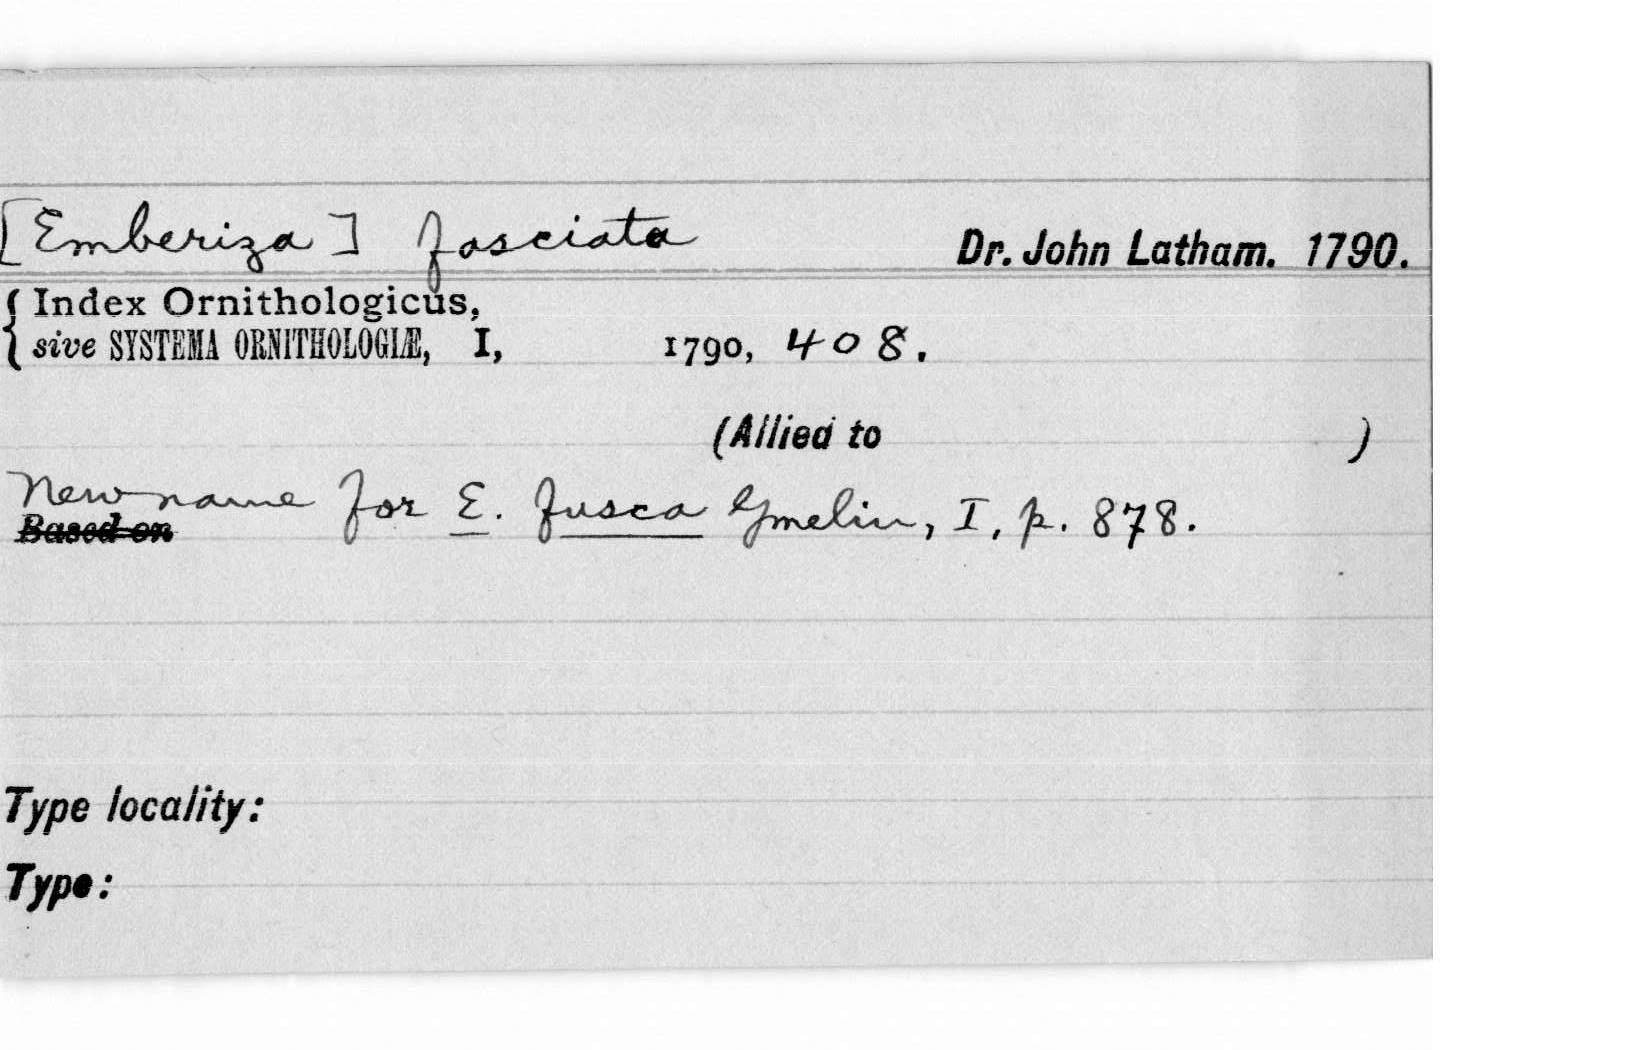 [Emberiza] fasciata Dr. John Latham. 1790.
{ Index Ornithologicus,
sive SYSTEMA ORNITHOLOGIÆ, I, 1790, 408.
(Allied to )
New name for E. fusca Gmelin, I, p. 878.
Based on
Type locality:
Type: